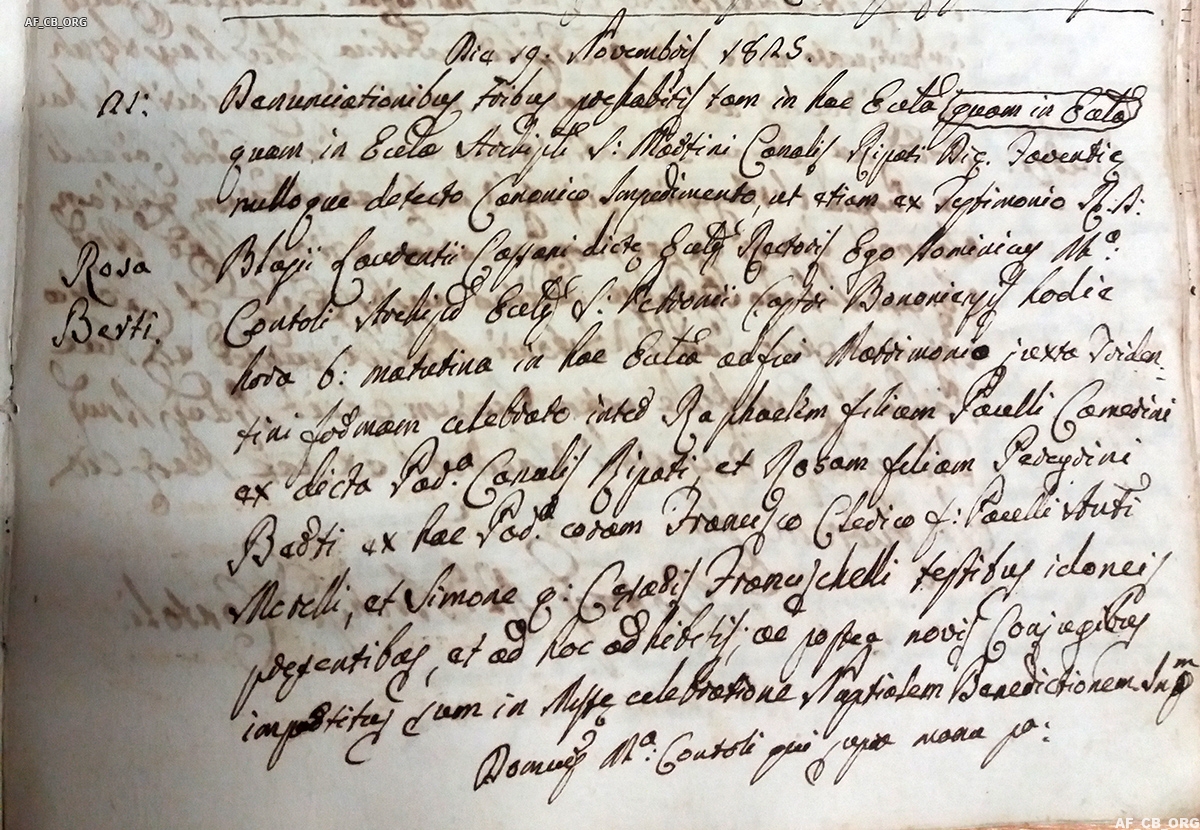 AF_CB_ORG
Die 19: Novembris 1825.
21: Denunciationibus tribus prehabitis tam in hac Eccla quam in Eccla
quam in Eccla Archiplī S: Martini Canalis Ripati Dię. Faventię
nulloque detecto Canonico Impedimento, ut etiam ex Testimonio R. D:
Rosa Blasii Gaudentii Cassani dictę Eccłę Rectoris Ego Dominicus Ma:
Berti. Contoli Archip. Eccłę S: Petronii Castri Bononiensis hodie
hora 6: matutina in hac Eccla adfui Matrimonio juxta Triden=
tini formam celebrato inter Raphaelem filium Paulli Camerini
ex dicta Par.a Canalis Ripati, et Rosam filiam Peregrini
Berti ex hac Par.a coram Francisco Clerico f: Paulli Anti
Morelli, et Simone q: Cęsaris Franceschelli testibus idoneis
pręsentibus, et ad hoc adhibitis; ac postea novis Conjugibus
impertitus sum in Missę celebratione Nuptialem Benedictionem. In
Domcus Ma: Contoli qui supra manu pa:
AF_CB_ORG